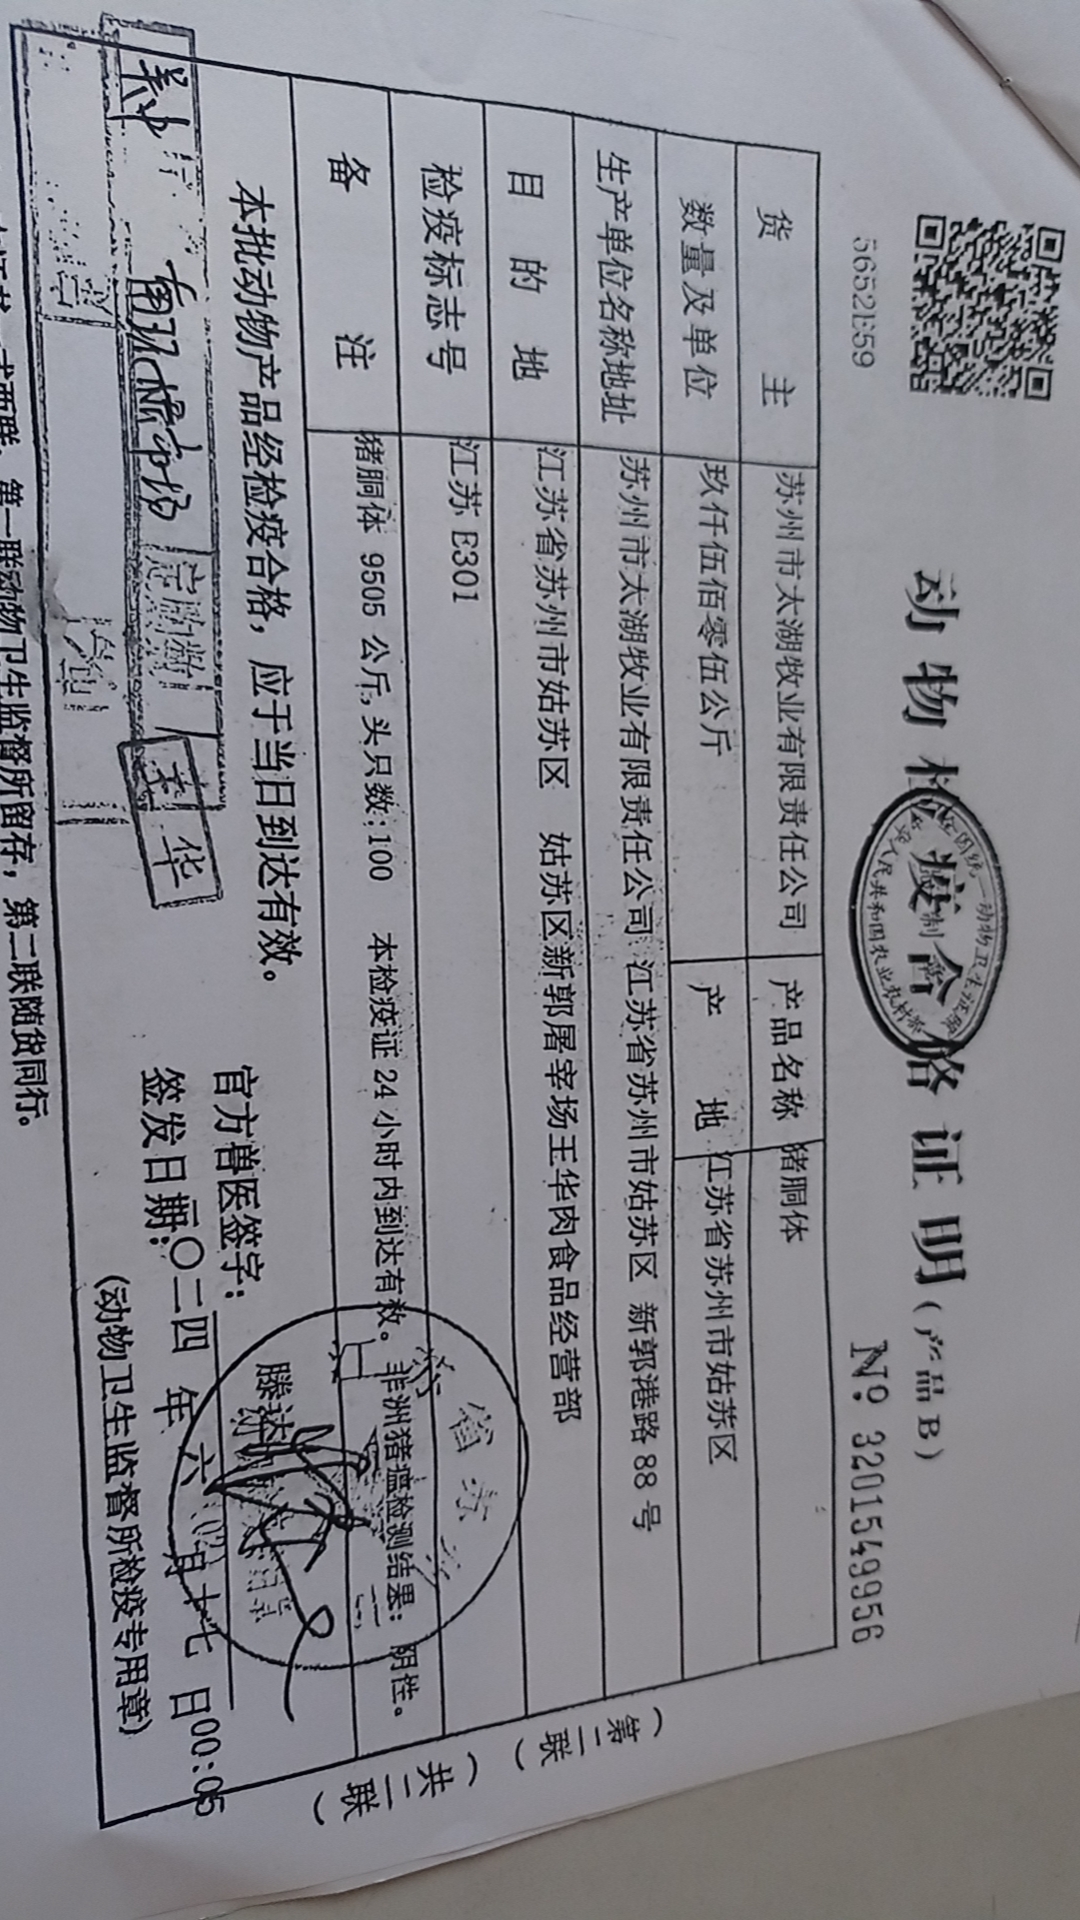 5652E59
动物检疫合格证明（产品B）
№ 32015549956
货主 苏州市太湖牧业有限责任公司 产品名称 猪胴体
数量及单位 玖仟伍佰零伍公斤 产地 江苏省苏州市姑苏区
生产单位名称地址 苏州市太湖牧业有限责任公司 江苏省苏州市姑苏区 新郭港路88号
目的地 江苏省苏州市姑苏区 姑苏区新郭屠宰场王华肉食品经营部
检疫标志号 江苏E301
备注 猪胴体 9505 公斤,头只数:100 本检疫证 24 小时内到达有效。非洲猪瘟检测结果：阴性。
本批动物产品经检疫合格，应于当日到达有效。
官方兽医签字：
滕达
签发日期: 二〇二四 年 六 月十七 日00:05
（动物卫生监督所检疫专用章）
第一联动物卫生监督所留存，第二联随货同行。
（第二联）（共二联）
市场
华